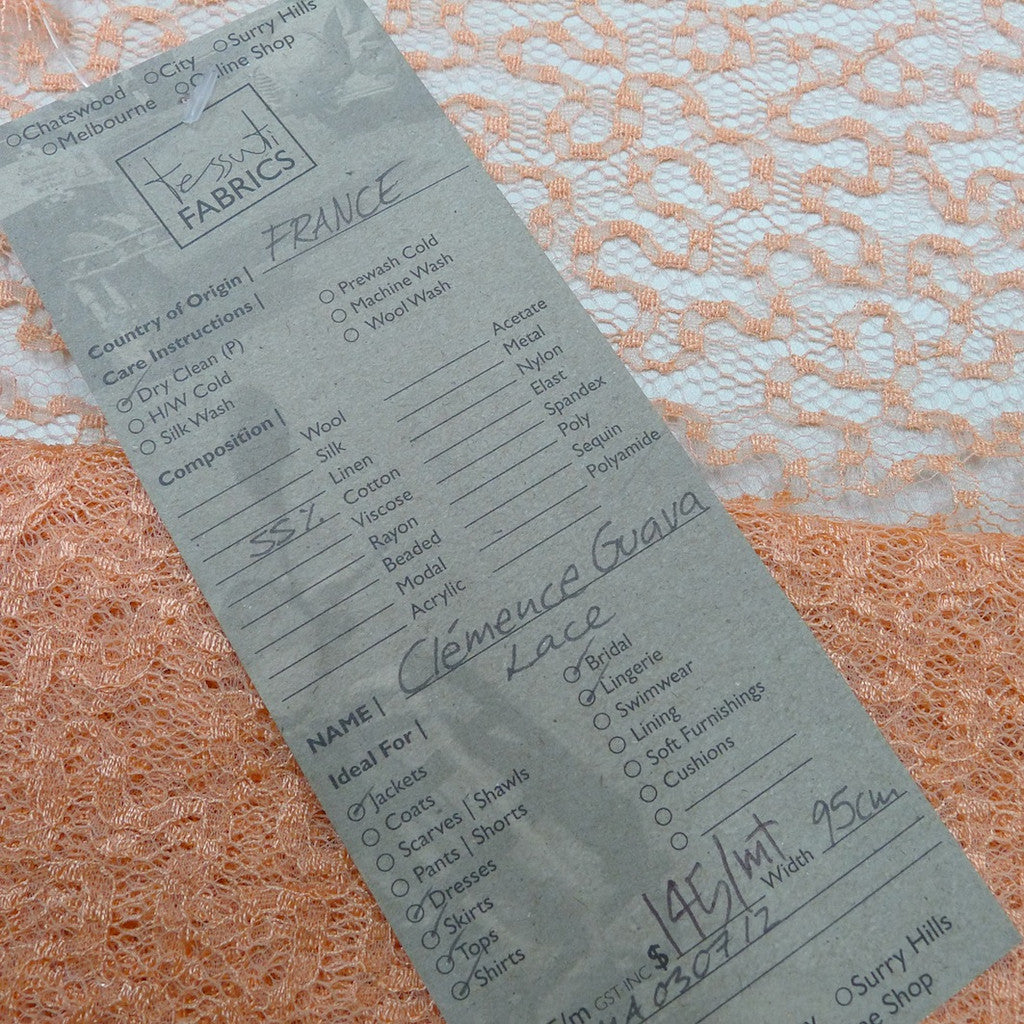 ○City ○Surry Hills
○Chatswood ○Online Shop
○Melbourne
tessuti
FABRICS
Country of Origin | FRANCE
Care Instructions |
○ Dry Clean (P) ○ Prewash Cold
○ H/W Cold ○ Machine Wash
○ Silk Wash ○ Wool Wash
Composition |
Wool Acetate
Silk Metal
Linen Nylon
55% Cotton Elast
Viscose Spandex
Rayon Poly
Beaded Sequin
Modal Polyamide
Acrylic
NAME | Clémence Guava
Lace
Ideal For |
○ Jackets ○ Bridal
○ Coats ○ Lingerie
○ Scarves | Shawls ○ Swimwear
○ Pants | Shorts ○ Lining
○ Dresses ○ Soft Furnishings
○ Skirts ○ Cushions
○ Tops ○
○ Shirts ○
$145/mt Width 95cm
/m GST INC
A030712
○Surry Hills
Shop